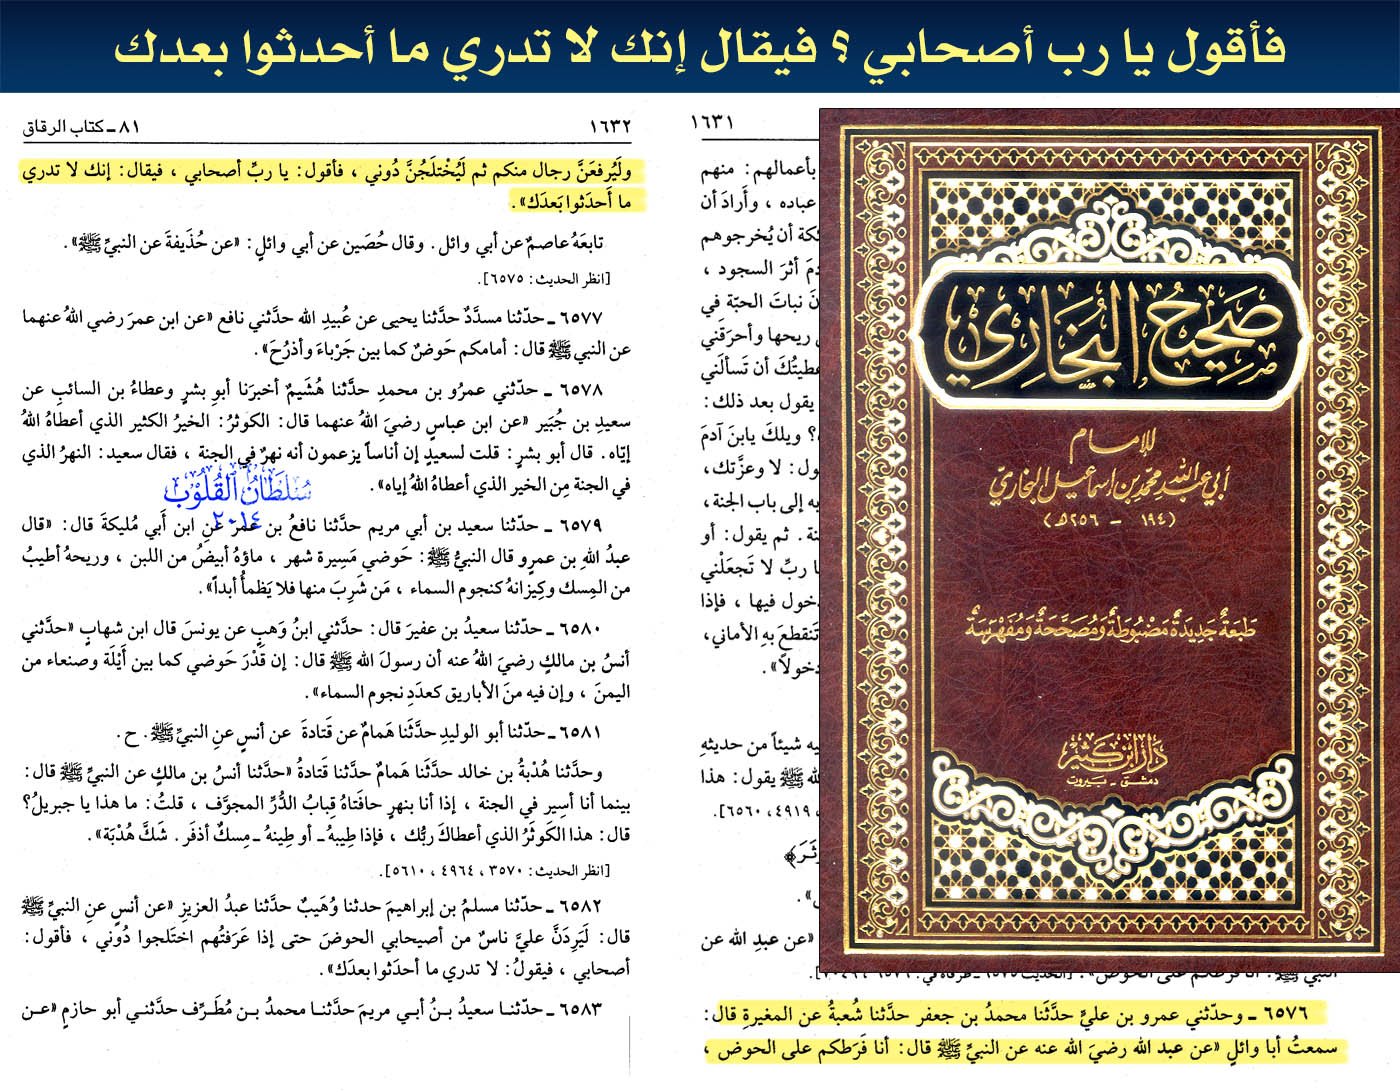 فأقول يا رب أصحابي ؟ فيقال إنك لا تدري ما أحدثوا بعدك
١٦٣١
بأعمالهم: منهم
عباده ، وأرادَ أن
ئكة أن يُخرجوهم
دمَ أثرَ السجود ،
نَ نباتَ الحبّة في
ريحها وأحرَقَني
عطيتُكَ أن تَسألَني
يقول بعد ذلك:
؟ ويلكَ يابنَ آدمَ
ول: لا وعزَّتك،
به إلى باب الجنة،
نة. ثم يقول: أو
ا ربِّ لا تَجعَلْني
دخول فيها ، فإذا
تَنقطعَ بهِ الأماني،
دخولاً».
يه شيئاً من حديثهِ
له ﷺ يقول: هذا
، ٤٩١٩، ٦٥٦٠].
ثَرَ﴾
».
«عن عبدِ الله عن
النبيِّ ﷺ: أنا فَرَطُكم على الحوض». [الحديث ٦٥٧٥ ـ طرفاه في: ٦٥٧٦،
٦٥٧٦ ـ وحدّثني عمرو بن عليٍّ حدَّثنا محمدُ بن جعفر حدَّثنا شُعبةُ عن المغيرةِ قال:
سمعتُ أبا وائلٍ «عن عبد الله رضيَ الله عنه عن النبيِّ ﷺ قال: أنا فَرَطكم على الحوض ،
صَحِيحُ البُخَارِيّ
للإمام
أبي عبد الله محمد بن اسماعيل البخاريّ
(١٩٤ - ٢٥٦ه)
طبعَةٌ جَديدَةٌ مَضبُوطَةٌ وَمُصَحَّحَةٌ وَمُفَهْرَسَةٌ
دَارُ ابْن كَثِير
دمشق - بيروت
١٦٣٢
٨١ ـ كتاب الرقاق
ولَيُرفعَنَّ رجال منكم ثم لَيُخْتلَجُنَّ دُوني ، فأقول: يا ربِّ أصحابي ، فيقال: إنك لا تدري
ما أَحدَثوا بَعدَك».
تابعَهُ عاصمٌ عن أبي وائل. وقال حُصَين عن أبي وائلٍ: «عن حُذَيفةَ عن النبيِّ ﷺ».
[انظر الحديث: ٦٥٧٥].
٦٥٧٧ ـ حدّثنا مسدَّدٌ حدَّثنا يحيى عن عُبيدِ الله حدَّثني نافع «عن ابن عمرَ رضي اللهُ عنهما
عن النبي ﷺ قال: أمامكم حَوضٌ كما بين جَرْباءَ وأذرُحَ».
٦٥٧٨ ـ حدّثني عمرُو بن محمدِ حدَّثنا هُشَيمٌ أخبرَنا أبو بشرٍ وعطاءُ بن السائبِ عن
سعيدِ بن جُبَير «عن ابن عباسٍ رضيَ اللهُ عنهما قال: الكوثرُ: الخيرُ الكثير الذي أعطاهُ اللهُ
إيّاه. قال أبو بشرٍ: قلت لسعيدٍ إن أناساً يزعمون أنه نهرٌ في الجنة ، فقال سعيد: النهرُ الذي
في الجنة مِن الخير الذي أعطاهُ اللهُ إياه».
سُلطَانُ القُلُوب
٢٠١٤
٦٥٧٩ ـ حدّثنا سعيد بن أبي مريم حدَّثنا نافعُ بن عمر عنِ ابن أَبي مُليكةَ قال: «قال
عبدُ اللهِ بن عمرٍو قال النبيُّ ﷺ: حَوضي مَسِيرة شهر ، ماؤهُ أبيضُ من اللبن ، وريحهُ أطيبُ
من المِسك وكِيزانهُ كنجوم السماء ، مَن شَرِبَ منها فلا يَظمأُ أبداً».
٦٥٨٠ ـ حدّثنا سعيدُ بن عفيرَ قال: حدَّثني ابنُ وَهبٍ عن يونسَ قال ابن شهابٍ «حدَّثني
أنسُ بن مالكٍ رضيَ اللهُ عنه أن رسولَ الله ﷺ قال: إن قَدْرَ حَوضي كما بين أَيْلَة وصنعاء من
اليمنَ ، وإن فيه منَ الأباريق كعدَدِ نجوم السماء».
٦٥٨١ ـ حدّثنا أبو الوليدِ حدَّثَنا هَمامٌ عن قَتادةَ عن أنسٍ عنِ النبيِّ ﷺ. ح.
وحدَّثنا هُدْبةُ بن خالد حدَّثَنا هَمامٌ حدَّثنا قَتادةُ «حدَّثنا أنسُ بن مالكٍ عن النبيِّ ﷺ قال:
بينما أنا أَسِير في الجنة ، إذا أنا بنهرٍ حافَتاهُ قِبابُ الدُّرِّ المجوَّف ، قلتُ: ما هذا يا جبريلُ؟
قال: هذا الكَوثَرُ الذي أعطاكَ ربُّك ، فإذا طِيبهُ ـ أو طِينهُ ـ مِسكٌ أذفَر. شَكَّ هُدْبَة».
[انظر الحديث: ٣٥٧٠ ، ٤٩٦٤ ، ٥٦١٠].
٦٥٨٢ ـ حدّثنا مسلمُ بن إبراهيمَ حدثنا وُهَيبٌ حدَّثنا عبدُ العزيزِ «عن أنسٍ عنِ النبيِّ ﷺ
قال: لَيَرِدَنَّ عليَّ ناسٌ من أصيحابي الحوضَ حتى إذا عَرَفتُهم اختَلجوا دُوني ، فأقول:
أصحابي ، فيقولُ: لا تدري ما أحدَثوا بعدَك».
٦٥٨٣ ـ حدَّثنا سعيدُ بنُ أبي مريمَ حدَّثنا محمدُ بن مُطَرِّف حدَّثني أبو حازمٍ «عن